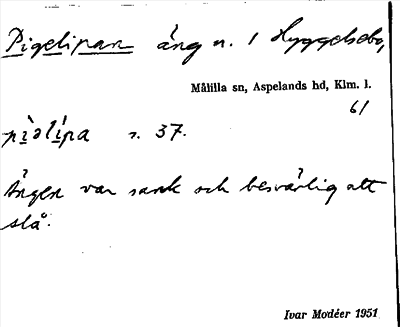 Pigelipan äng n. 1 Hyggelsebo,
Målilla sn, Aspelands hd, Klm. l.
61
s. 37.
Ängen var sank och besvärlig att
slå.
Ivar Modéer 1951